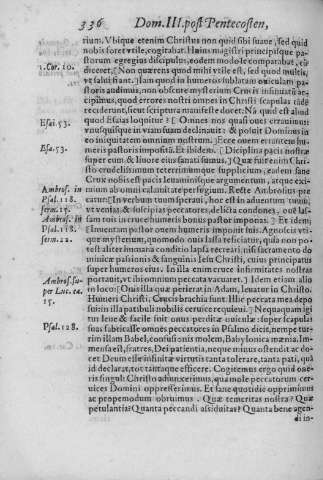 336 Dom. III. post Pentecosten,
rium. Vbique etenim Christus non quid sibi suaue, sed quid
nobis foret vtile, cogitabat. Huius magistri principisque pa-
storum egregius discipulus, eodem modo se comparabat, cù
1. Cor. 10. diceret, [Non quærens quod mihi vtile est, sed quod multis,
vt salui fiant.] Iam quod in humeros sublatam ouiculam pa-
storis audimus, non obscure mysterium Crucis insinuatū ac-
cipimus, quod errores nostri omnes in Christi scapulas cādē
reciderunt, sicut scriptura manifeste docet: Nā quid est aliud
Esai. 53. quod Esaias loquitur? [Omnes nos quasi oues errauimus,
vnusquisque in viam suam declinauit: & posuit Dominus in
eo iniquitatem omnium nostrum.] Ecce ouem errantem hu-
Esa. 53. meris pastoris impositā. Et ibidem. [Disciplina pacis nostræ
super eum, & liuore eius sanati sumus.] Quæ fuit enim Chri-
sto crudelissimum teterrimumque supplicium, eadem sane
Crux nobis est pacis leuaminisque argumentum, atque exi-
Ambros. in mium ab omni calamitate perfugium. Recte Ambrosius pre
Psal. 118. catur: [In verbum tuum speraui, hoc est in aduentum tuum,
serm. 15. vt venias & suscipias peccatores, delicta condones, ouē las-
Ambros. in sam tuis in cruce humeris bonus pastor imponas.] Et idem
Psal. 118. [Inuentam pastor ouem humeris imponit suis. Agnoscis vti-
serm. 22. que mysterium, quomodo ouis lassa reficiatur, quia non po-
test aliter humana conditio lapsa recreari, nisi sacramento do
minicæ passionis & sanguinis Iesu Christi, cuius principatus
super humeros eius. In illa enim cruce infirmitates nostras
Ambros. su- portauit, vt ibi omnium peccata vacuaret.] Idem etiam alio
per Luc. ca. in loco [Ouis illa quæ perierat in Adam, leuatur in Christo.
15. Humeri Christi, Crucis brachia sunt. Illic peccata mea depo
sui: in illa patibuli nobilis ceruice requieui.] Nequaquam igi
tur lene & facile fuit onus perditæ ouiculæ: super scapulas
Psal. 128. suas fabricasse omnes peccatores in Psalmo dicit, nempe tur-
rim illam Babel, confusionis molem, Babylonica mœnia. Im-
mensa est, fratres, Dei patientia, neque minus ostendit ac do-
cet Deum esse infinitæ virtutis tanta tolerare, tanta pati, quā
id declarat, tot tantaque efficere. Cogitemus ergo quid one-
ris singuli Christo adiunxerimus, qua mole peccatorum cer-
uices Domini oppresserimus. Et sane quotidie opprimimus
ac propemodum obruimus. Quæ temeritas nostra? Quæ
petulantia? Quanta peccandi assiduitas? Quanta bene agen-
di in-